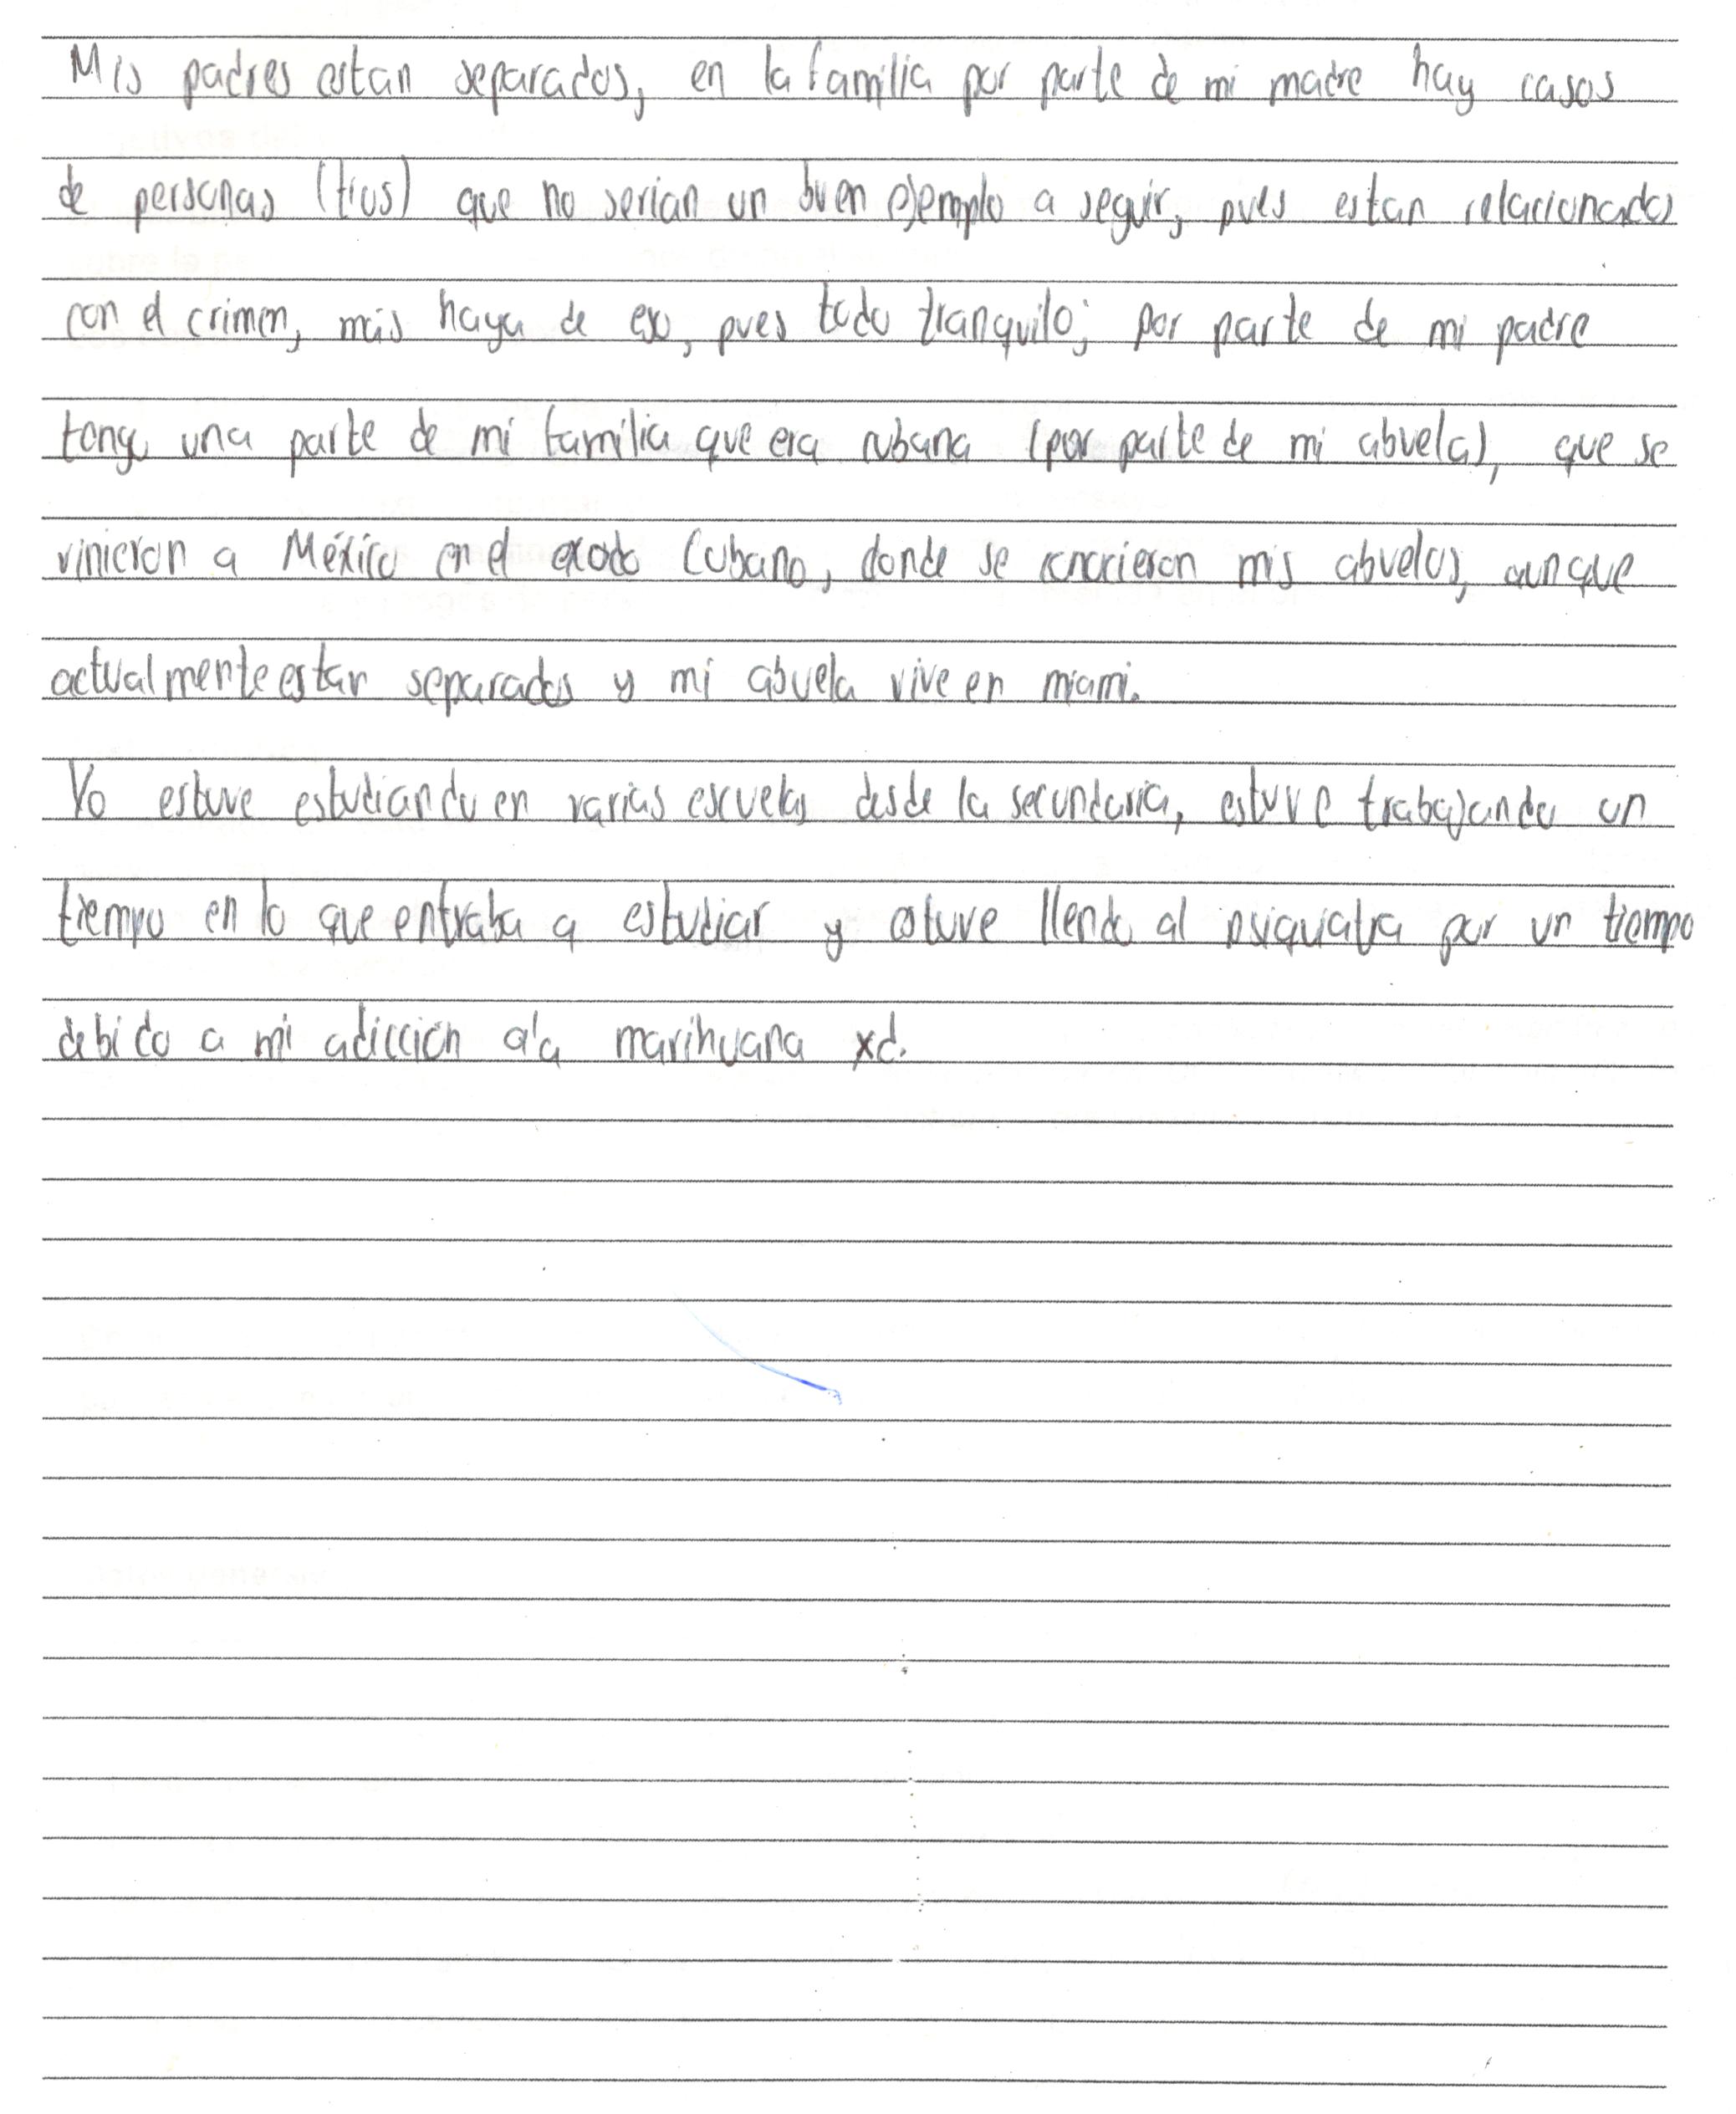 Mis padres estan separados, en la familia por parte de mi madre hay casos
de personas (tios) que no serian un buen ejemplo a seguir, pues estan relacionados
con el crimen, más haya de eso, pues todo tranquilo; por parte de mi padre
tengo una parte de mi familia que era cubana (por parte de mi abuela), que se
vinieron a México en el exodo Cubano, donde se conocieron mis abuelos, aunque
actualmente estan separados y mi abuela vive en miami.
Yo estuve estudiando en varias escuelas desde la secundaria, estuve trabajando un
tiempo en lo que entraba a estudiar y estuve llendo al psiquiatra por un tiempo
debido a mi adicción a la marihuana xd.